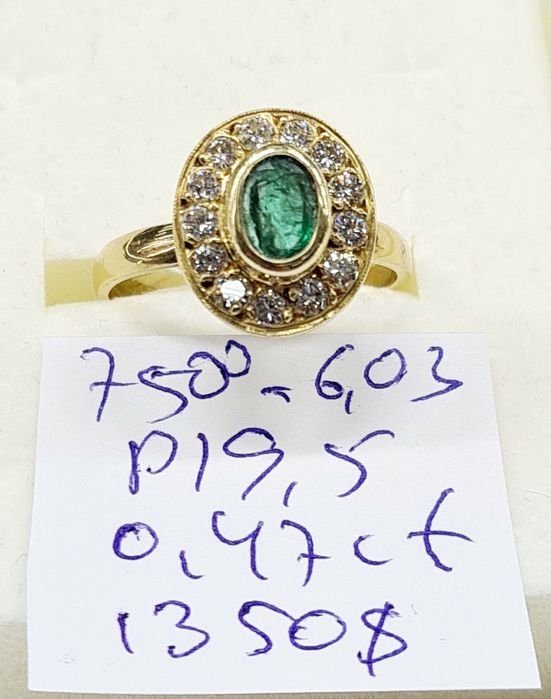 750⁰ - 6,03
р19,5
0,47ct
1350$